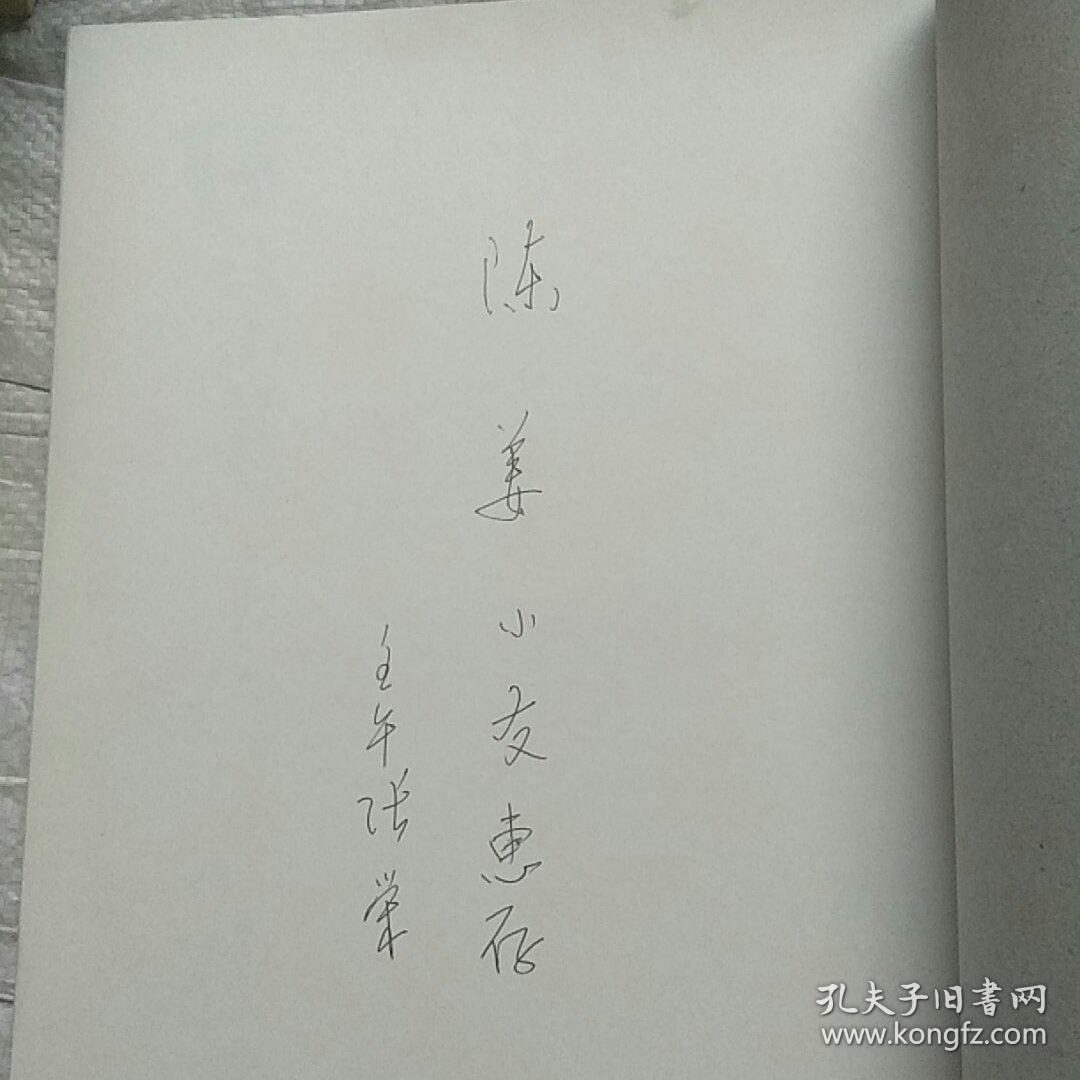 陈姜小友惠存
壬午张荣
孔夫子旧书网
www.kongfz.com